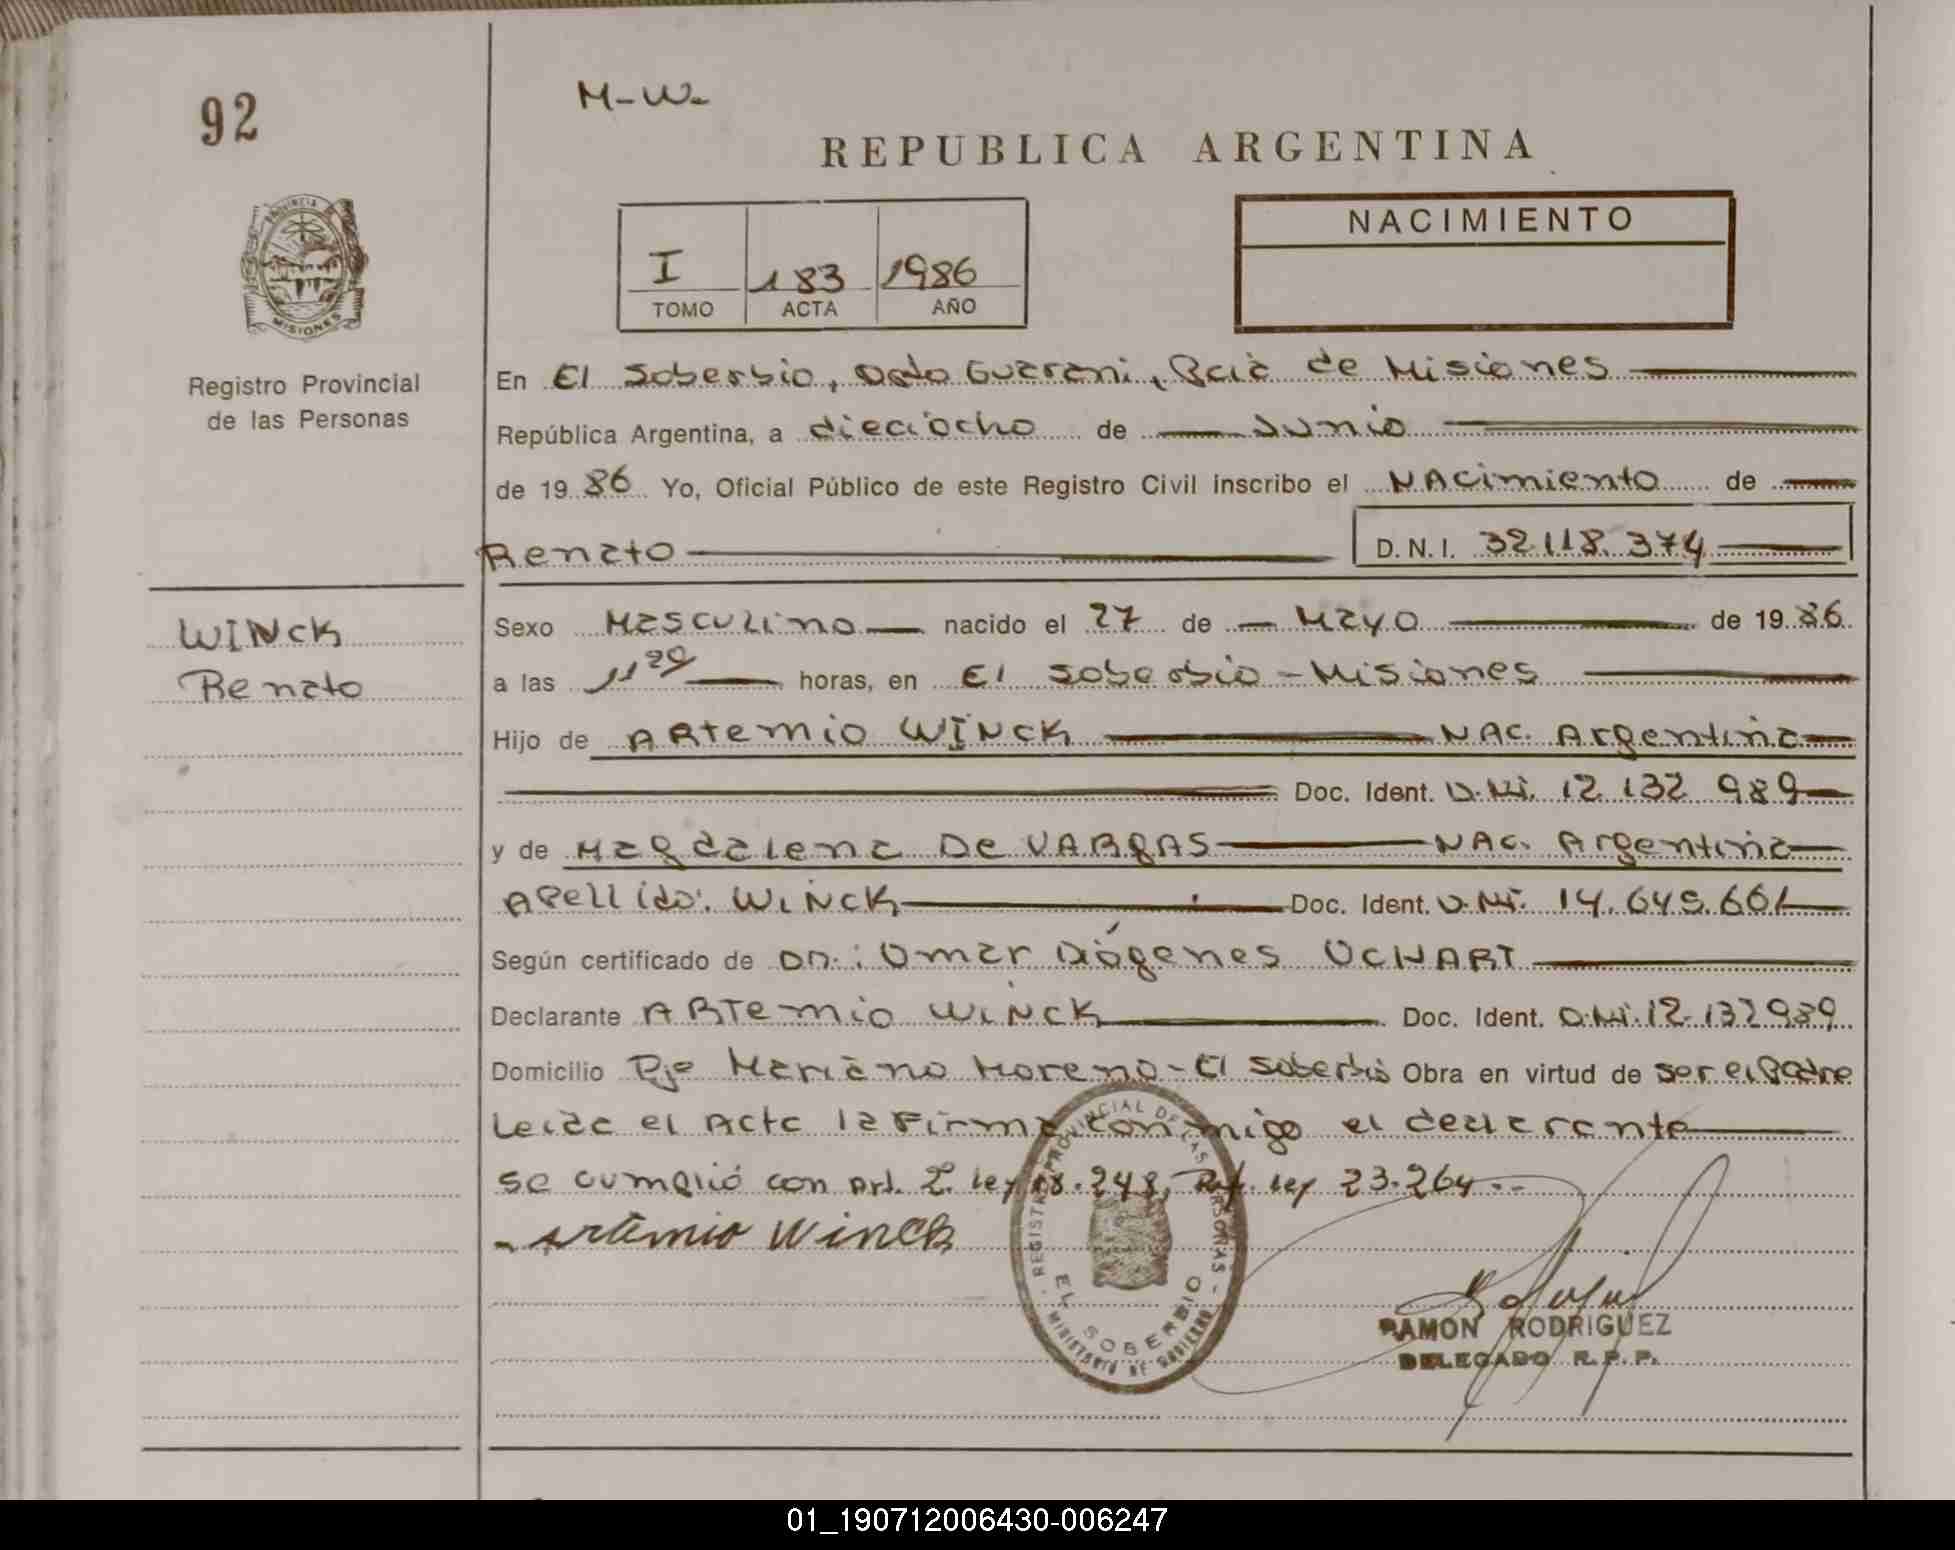 92
M-W-
REPUBLICA ARGENTINA
PROVINCIA DE
MISIONES
Registro Provincial
de las Personas
I 183 1986
TOMO ACTA AÑO
NACIMIENTO
En El Soberbio, Dpto Guarani, Pcia de Misiones
República Argentina, a dieciocho de Junio
de 1986 Yo, Oficial Público de este Registro Civil inscribo el NAcimiento de
Renato D.N.I. 32.118.374
WINCK
Renato
Sexo Masculino nacido el 27 de Mayo de 1986
a las 11 20 horas, en El Soberbio - Misiones
Hijo de ARtemio WINCK NAC. Argentina
Doc. Ident. D.Ni. 12.132 989
y de Magdalena De VARGAS NAC. Argentina
Apellido: WINCK Doc. Ident. D.Ni. 14.649.661
Según certificado de DR.: Omar Diógenes OCHART
Declarante ARTemio WINCK Doc. Ident. D.Ni. 12.132989
Domicilio Pje Mariano Moreno - El Soberbio Obra en virtud de ser el Padre
Leida el Acta la Firma conmigo el declarante
se cumplió con Art. 2º Ley 18.248, Ley 23.264
Artemio Winck
REGISTRO PROVINCIAL DE LAS PERSONAS
EL SOBERBIO
MINISTERIO DE GOBIERNO
RAMON RODRIGUEZ
DELEGADO R.P.P.
01_190712006430-006247